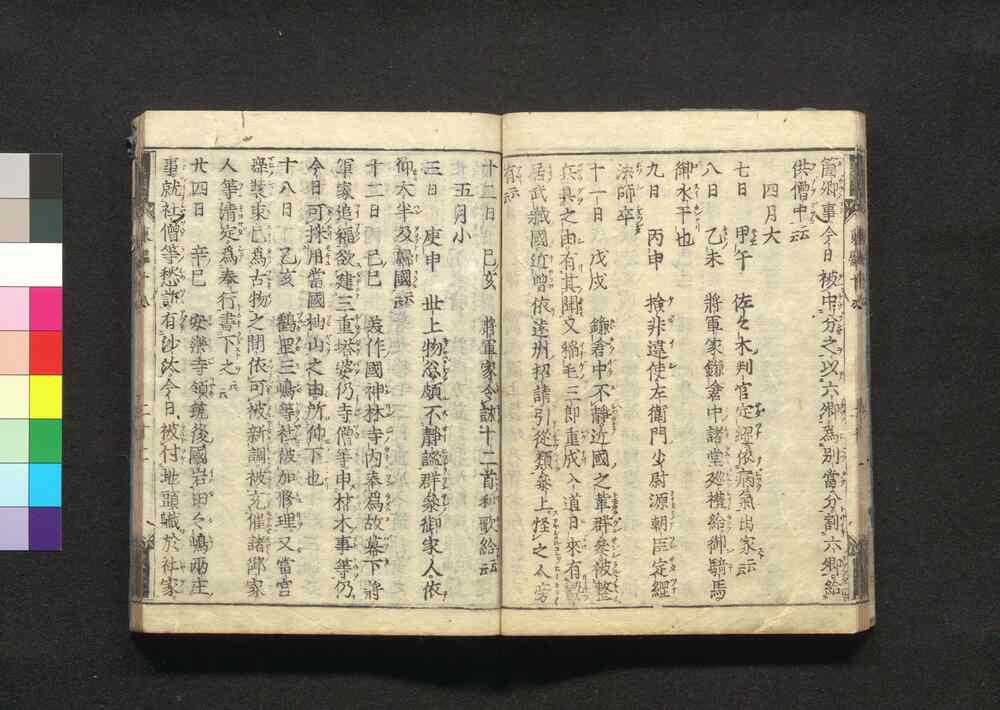 箇郷事今日被中分之以六郷為別當分割六郷給
供僧中云云
四月大
七日　甲午　佐々木判官定綱依病危出家云云
八日　乙未　將軍家鎌倉中諸堂巡禮給御騎馬
御水干也
九日　丙申　撿非違使左衛門少尉源朝臣定綱
法師卒
十一日　戊戌　鎌倉中不靜近國之輩群參被整
兵具之由有其聞又稲毛三郎重成入道日來有
居武藏國近曾依遠州招請引從類參上怪之人旁
有云云
廿二日　己亥　將軍家令詠十二首和歌給云云
五月小
三日　庚申　世上物忩頗不靜謐群參御家人依
仰大半及歸國云云
十二日　己巳　美作國神林寺内奉為故幕下將
軍家追福欲建三重塔婆仍寺僧等申材木事等仍
今日可採用當國杣山之由所仰下也
十八日　乙亥　鶴罡三嶋等社被加修理又當宮
樂裝束已為古物之間依可被新調被充催諸御家
人等清定為奉行書下之云云
廿四日　辛巳　安樂寺領筑後國岩田々嶋兩庄
事就社僧等愁訴有沙汰今日被付地頭軄於社家